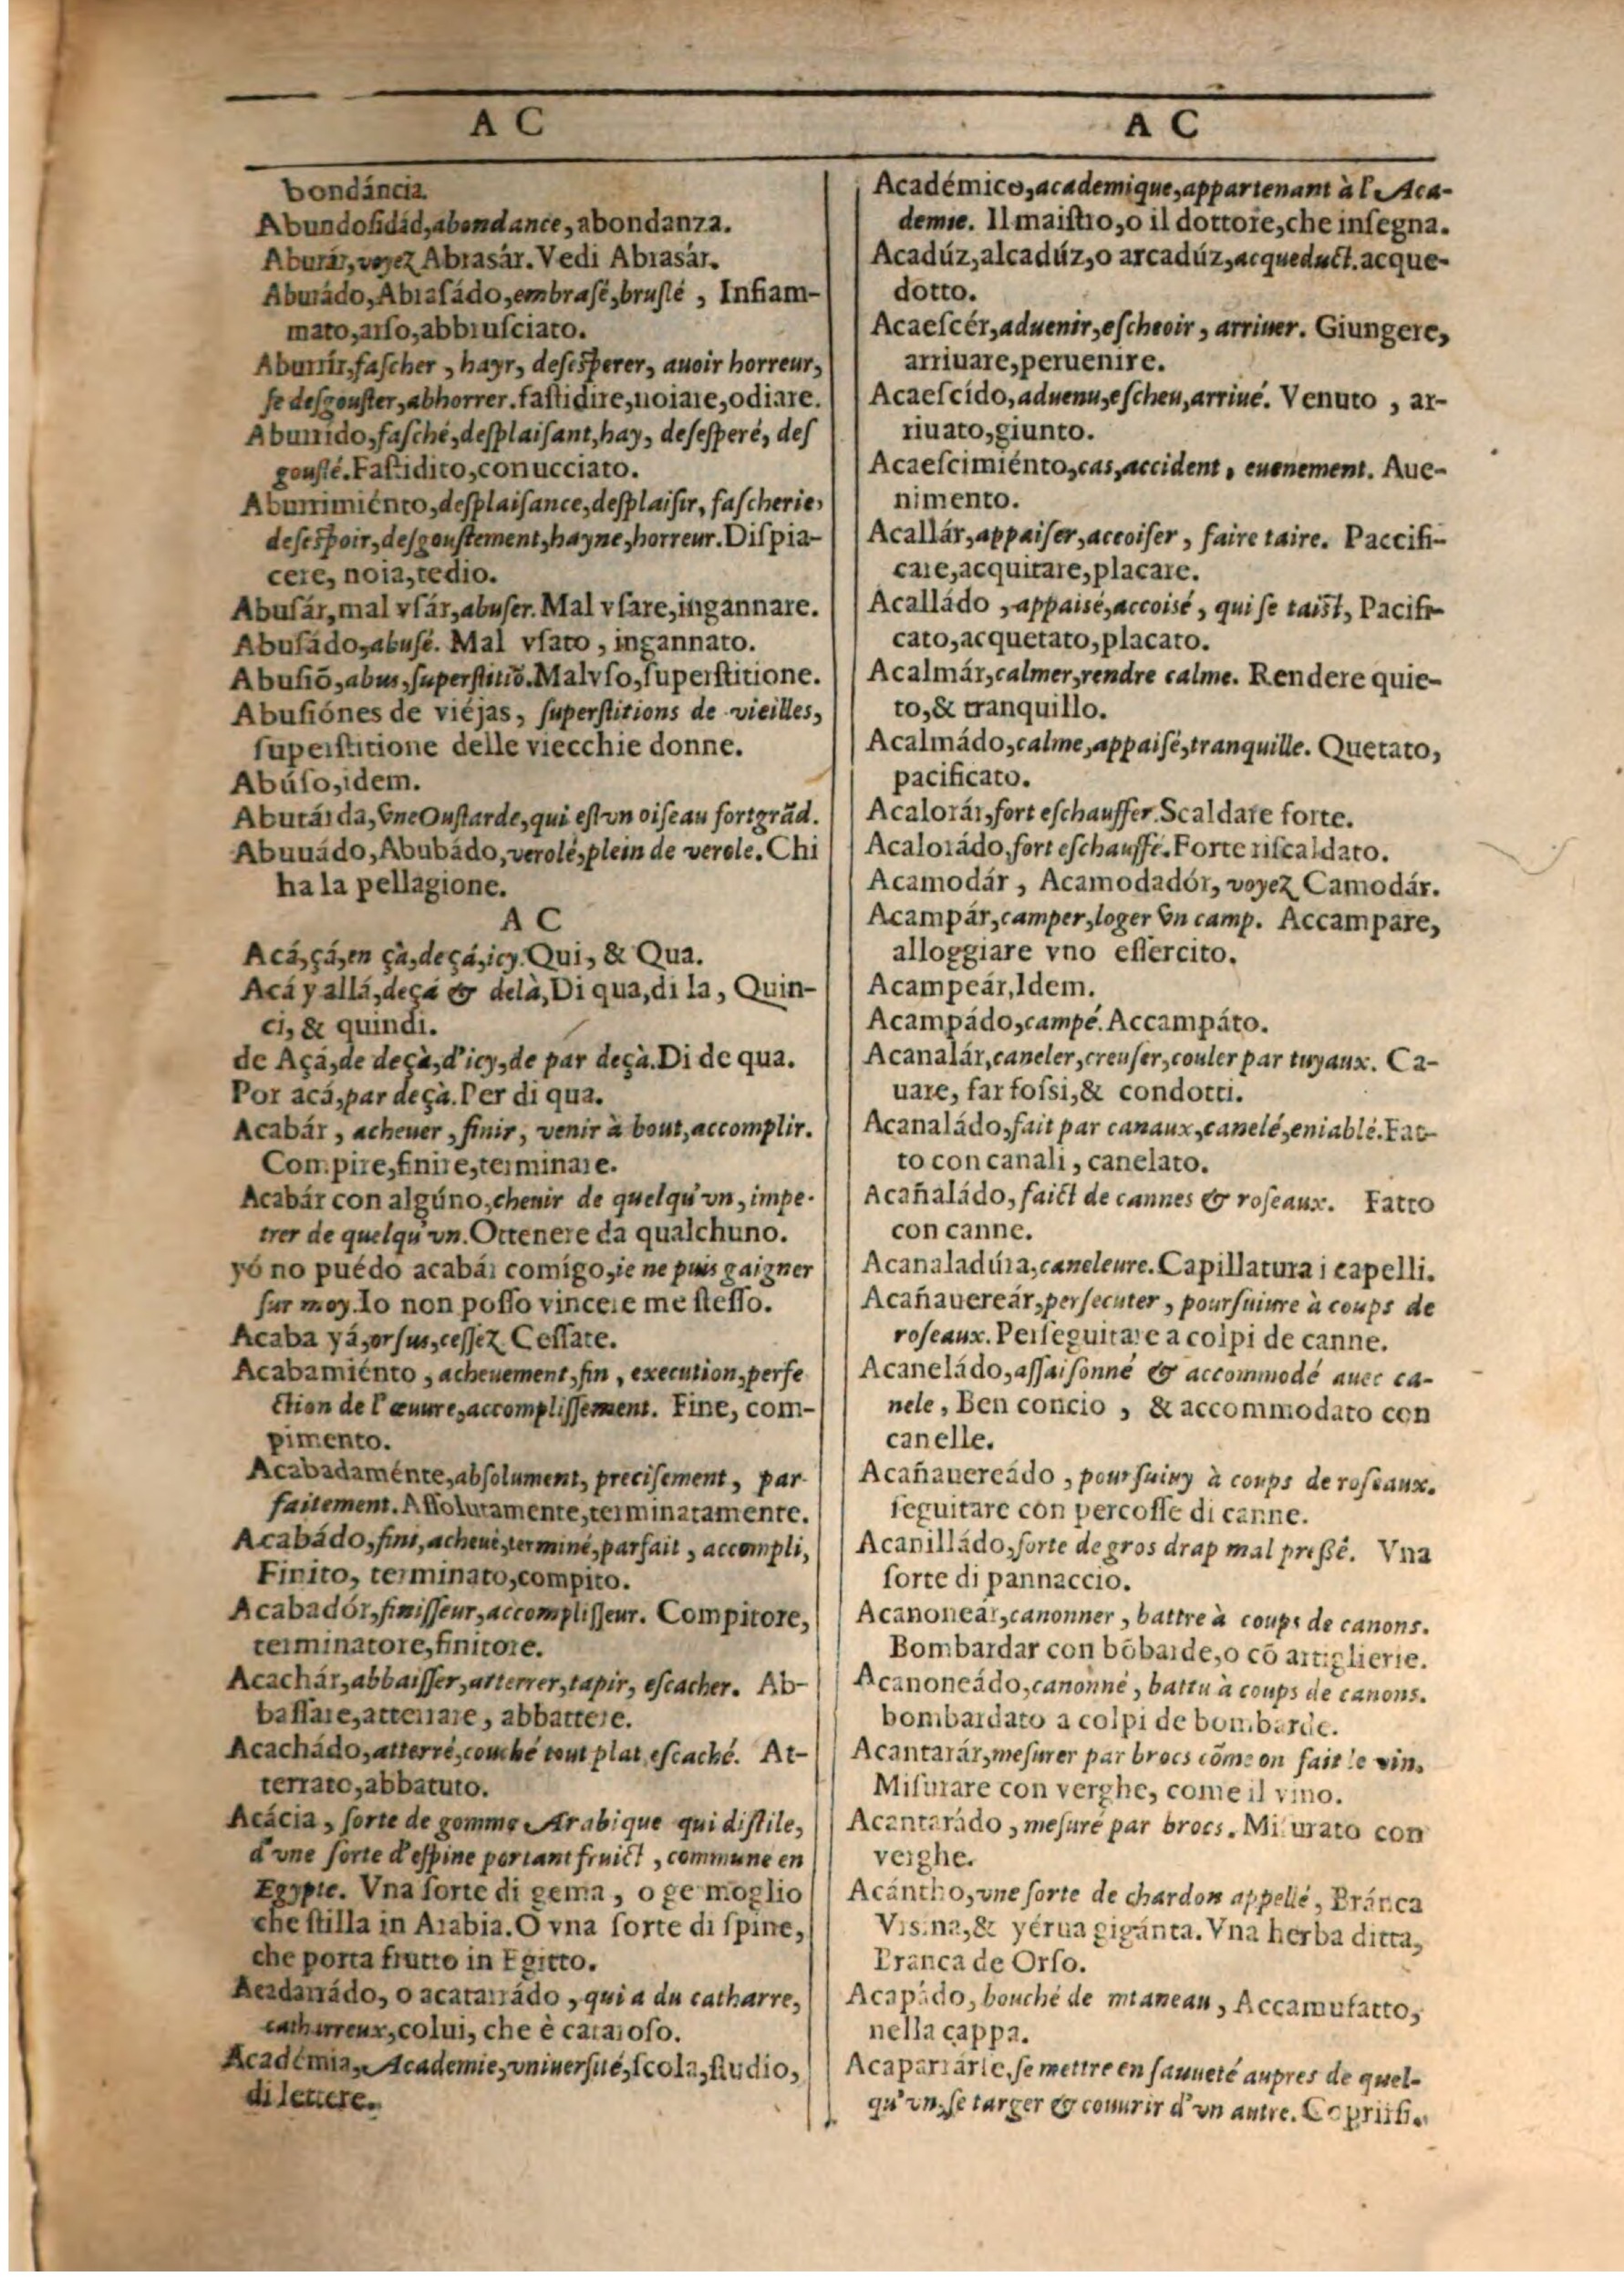 A C
bondáncia.
Abundoſidád, abondance, abondanza.
Aburár, voyez Abrasár. Vedi Abrasár.
Aburádo, Abraſádo, embraſé, bruſlé , Infiam-
mato, arſo, abbruſciato.
Aburrír, faſcher , hayr, deſeſperer, auoir horreur,
ſe deſgouſter, abhorrer. faſtidire, noiare, odiare.
Aburrido, faſché, deſplaiſant, hay, deſeſperé, deſ
gouſlé. Faſtidito, conucciato.
Aburrimiénto, deſplaiſance, deſplaiſir, faſcherie,
deſeſpoir, deſgouſtement, hayne, horreur. Diſpia-
cere, noia, tedio.
Abuſár, mal vſár, abuſer. Mal vſare, ingannare.
Abuſádo, abuſé. Mal vſato , ingannato.
Abuſiõ, abus, ſuperſtitiõ. Malvſo, ſuperſtitione.
Abuſiónes de viéjas, ſuperſtitions de vieilles,
ſuperſtitione delle viecchie donne.
Abúſo, idem.
Abutárda, vne Ouſtarde, qui eſt vn oiſeau fort grãd.
Abuuádo, Abubádo, verolé, plein de verole. Chi
ha la pellagione.
A C
Acá, çá, en çà, deçá, icy. Qui, & Qua.
Acá y allá, deçá & delà, Di qua, di la , Quin-
ci, & quindi.
de Açá, de deçà, d'icy, de par deçà. Di de qua.
Por acá, par deçà. Per di qua.
Acabár , acheuer , finir, venir à bout, accomplir.
Compire, finire, terminare.
Acabár con algúno, cheuir de quelqu'vn, impe-
trer de quelqu'vn. Ottenere da qualchuno.
yó no puédo acabár comígo, ie ne puis gaigner
ſur moy. Io non poſſo vincere me ſteſſo.
Acaba yá, orſus, ceſſez Ceſſate.
Acabamiénto , acheuement, fin , execution, perfe
ction de l'œuure, accompliſſement. Fine, com-
pimento.
Acabadaménte, abſolument, preciſement , par-
faitement. Aſſolutamente, terminatamente.
Acabádo, fini, acheué, terminé, parfait , accompli,
Finito, terminato, compito.
Acabadór, finiſſeur, accompliſſeur. Compitore,
terminatore, finitore.
Acachár, abbaiſſer, atterrer, tapir, eſcacher. Ab-
baſſare, atterrare , abbattere.
Acachádo, atterré, couché tout plat, eſcaché. At-
terrato, abbatuto.
Acácia , ſorte de gomme Arabique qui diſtile,
d'vne ſorte d'eſpine portant fruict , commune en
Egypte. Vna ſorte di gema , o ge moglio
che ſtilla in Arabia. O vna ſorte di ſpine,
che porta frutto in Egitto.
Acadarrádo, o acatarrádo , qui a du catharre,
catharreux, colui, che è cataroſo.
Académia, Academie, vniuerſité, ſcola, ſtudio,
di lettere.
A C
Académico, academique, appartenant à l'Aca-
demie. Il maiſtro, o il dottore, che inſegna.
Acadúz, alcadúz, o arcadúz, acqueduct. acque-
dotto.
Acaeſcér, aduenir, eſcheoir , arriuer. Giungere,
arriuare, peruenire.
Acaeſcído, aduenu, eſcheu, arriué. Venuto , ar-
riuato, giunto.
Acaeſcimiénto, cas, accident , euenement. Aue-
nimento.
Acallár, appaiſer, accoiſer , faire taire. Paccifi-
care, acquitare, placare.
Acalládo , appaisé, accoisé , qui ſe taiſt, Pacifi-
cato, acquetato, placato.
Acalmár, calmer, rendre calme. Rendere quie-
to, & tranquillo.
Acalmádo, calme, appaiſé, tranquille. Quetato,
pacificato.
Acalorár, fort eſchauffer. Scaldare forte.
Acalorádo, fort eſchauffé. Forte riſcaldato.
Acamodár , Acamodadór, voyez Camodár.
Acampár, camper, loger vn camp. Accampare,
alloggiare vno eſſercito.
Acampeár, Idem.
Acampádo, campé. Accampáto.
Acanalár, caneler, creuſer, couler par tuyaux. Ca-
uare, far foſſi, & condotti.
Acanaládo, fait par canaux, canelé, eniablé. Fat-
to con canali , canelato.
Acañaládo, faict de cannes & roſeaux. Fatto
con canne.
Acanaladúra, caneleure. Capillatura i capelli.
Acañauereár, perſecuter , pourſuiure à coups de
roſeaux. Perſeguitare a colpi de canne.
Acaneládo, aſſaiſonné & accommodé auec ca-
nele , Ben concio , & accommodato con
canelle.
Acañauereádo , pourſuiuy à coups de roſeaux.
ſeguitare con percoſſe di canne.
Acanilládo, ſorte de gros drap mal preſſé. Vna
ſorte di pannaccio.
Acanoneár, canonner , battre à coups de canons.
Bombardar con bõbarde, o cõ artiglierie.
Acanoneádo, canonné , battu à coups de canons.
bombardato a colpi de bombarde.
Acantarár, meſurer par brocs cõme on fait le vin.
Miſurare con verghe, come il vino.
Acantarádo , meſuré par brocs. Miſurato con
verghe.
Acántho, vne ſorte de chardon appellé , Bránca
Vrsina, & yérua gigánta. Vna herba ditta,
Branca de Orſo.
Acapádo, bouché de mtaneau , Accamufatto,
nella cappa.
Acaparrárſe, ſe mettre en ſauueté aupres de quel-
qu'vn, ſe targer & couurir d'vn autre. Coprirſi.